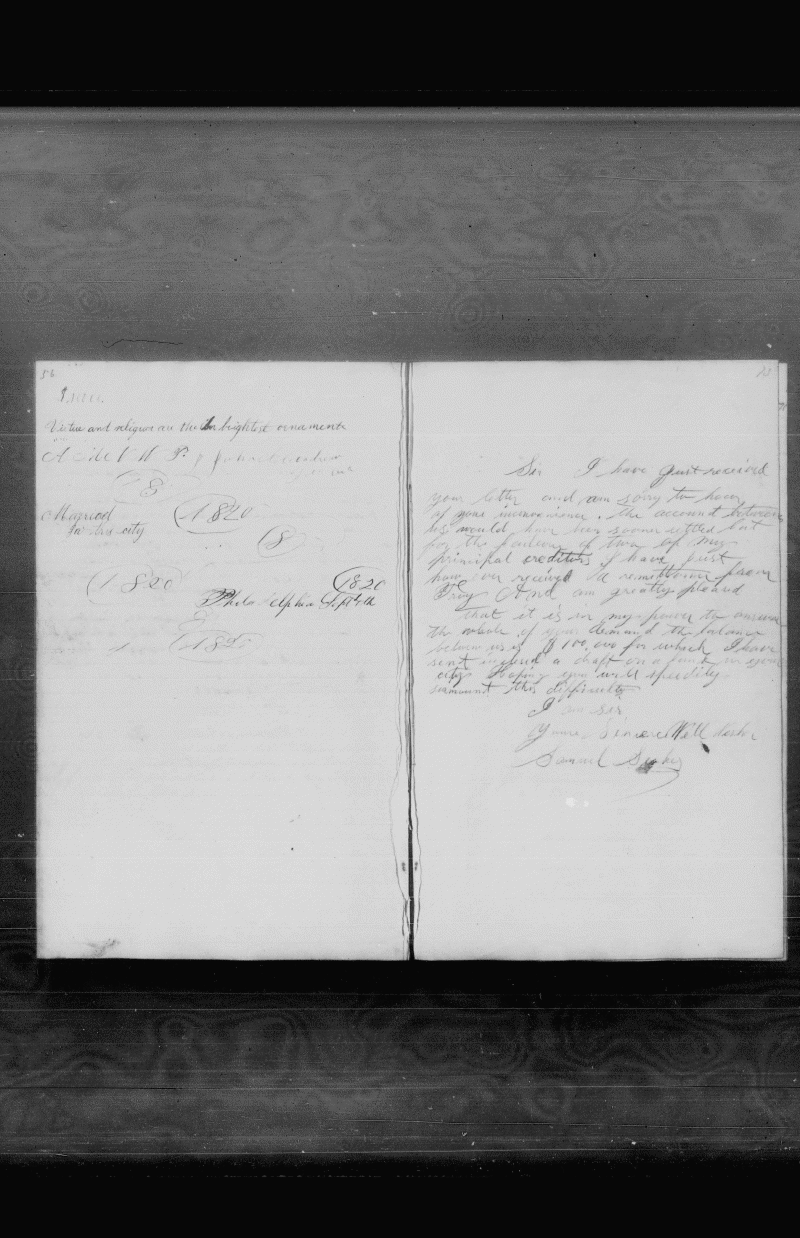 56
Virtue and religion are the brightest ornaments
18
Married 1820
In this city
18
1820 1820
Philadelphia Sept 4th
1820
Sir I have just received
your letter and am sorry to hear
of your inconvenience. the account between
us would have been sooner settled but
for the failure of two of my
principal creditors I have just
how ever received a remittance from
Troy And am greatly pleased
that it is in my power to answer
the whole of your demand the balance
between us is $100,000 for which I have
sent inclosed a draft on a bank in your
city Hoping you will speedily
surmount this difficulty
I am sir
Yours Sincere Well
Samuel